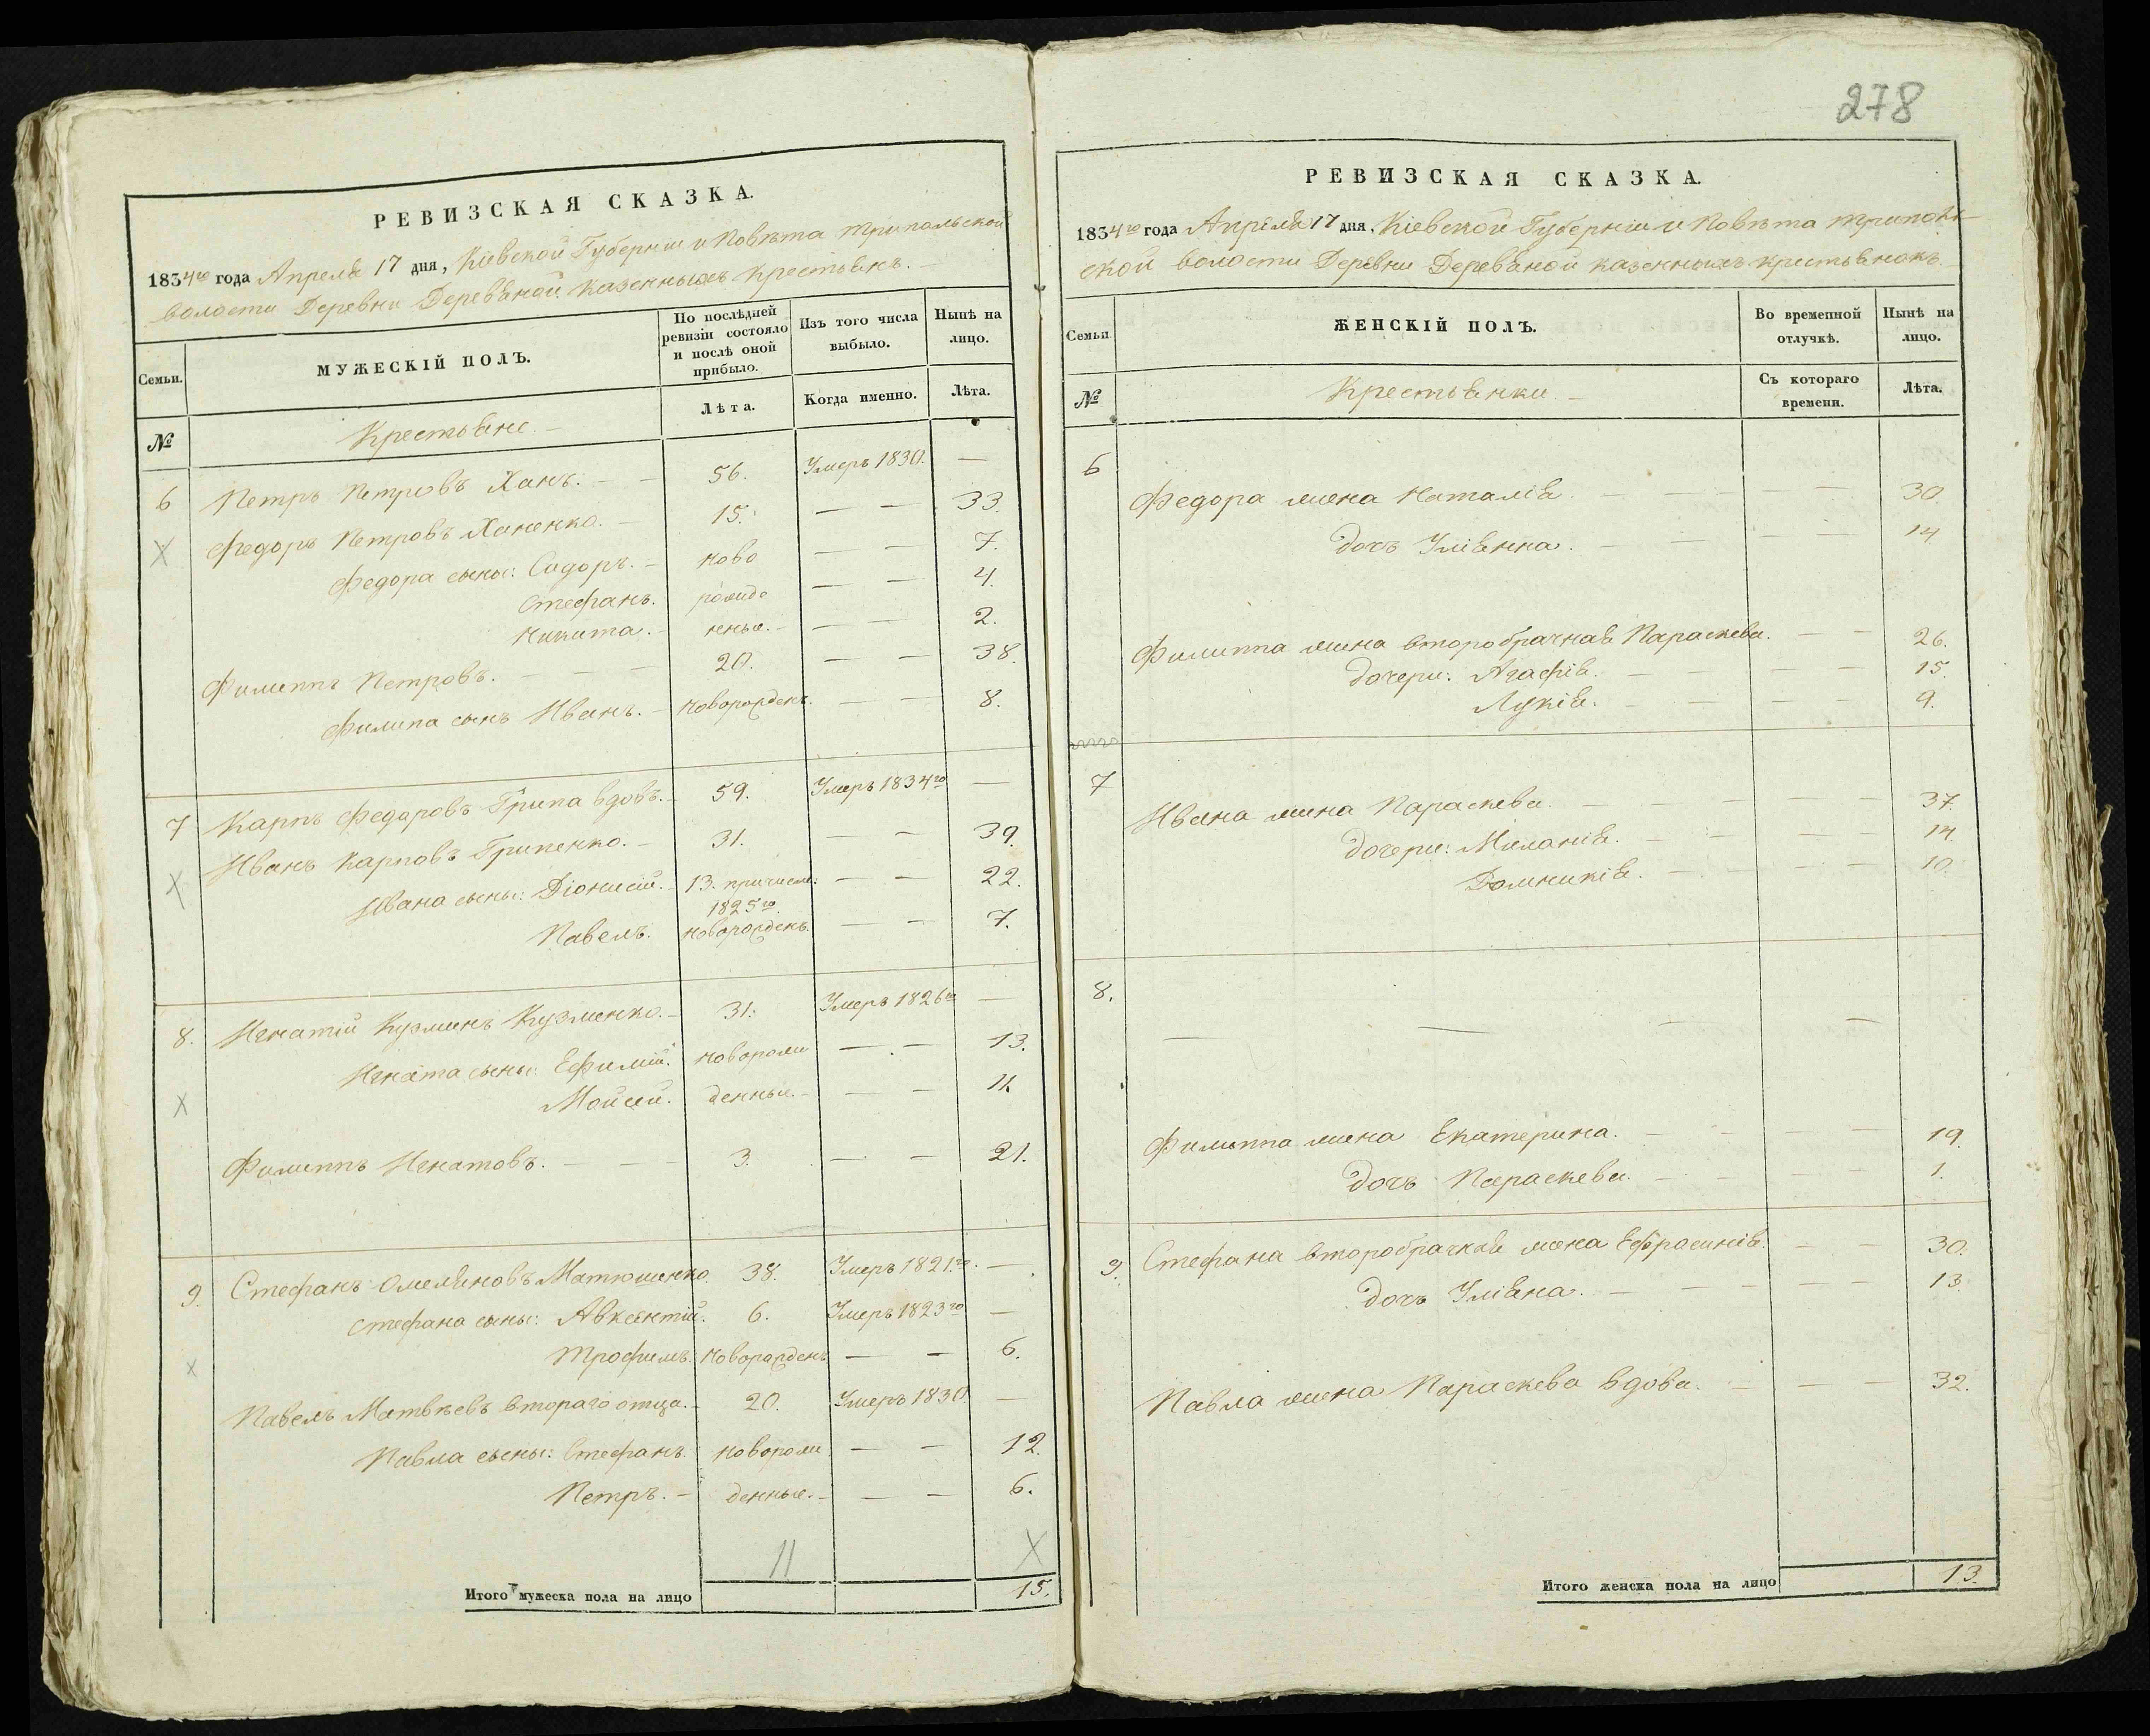 РЕВИЗСКАЯ СКАЗКА.
1834го года Апреля 17 дня, Кіевской Губерніи и Повѣта Трипольской
волости Деревни Деревяной казенныхъ крестьянъ.
Семьи.
МУЖЕСКІЙ ПОЛЪ.
По послѣдней ревизіи состояло и послѣ оной прибыло.
Изъ того числа выбыло.
Нынѣ на лицо.
№
Крестьяне
Лѣта.
Когда именно.
Лѣта.
6 Петръ Петровъ Ханъ. 56. Умеръ 1830. —
Федоръ Петровъ Ханенко. 15. — — 33.
Федора сыны: Сидоръ. ново — — 7.
Стефанъ. рожде — — 4.
Никита. нные. — — 2.
Филиппъ Петровъ. 20. — — 38.
Филипа сынъ Иванъ. новорожденъ. — — 8.
7 Карпъ Федоровъ Грипа вдовъ. 59. Умеръ 1834го —
Иванъ Карповъ Грипенко. 31. — — 39.
Ивана сыны: Діонисій. 13. причисл: 1825го — — 22.
Павелъ. новорожденъ. — — 7.
8. Игнатій Кузминъ Кузменко. 31. Умеръ 1826го —
Игната сыны: Ефимій. новорож — — 13.
Мойсей. денные. — — 11.
Филиппъ Игнатовъ. 3. — — 21.
9. Стефанъ Омеляновъ Матюшенко. 38. Умеръ 1821го. —
Стефана сыны: Авксентій. 6. Умеръ 1823го —
Трофимъ. новорожденъ — — 6.
Павелъ Матвѣевъ втораго отца. 20. Умеръ 1830. —
Павла сыны: Стефанъ. новорож — — 12.
Петръ. денные. — — 6.
11 X
Итого мужеска пола на лицо 15.
278
РЕВИЗСКАЯ СКАЗКА.
1834го года Апреля 17 дня, Кіевской Губерніи и Повѣта Триполь-
ской волости Деревни Деревяной казенныхъ крестьянокъ.
Семьи.
ЖЕНСКІЙ ПОЛЪ.
Во временной отлучкѣ.
Нынѣ на лицо.
№
Крестьянки
Съ котораго времени.
Лѣта.
6
Федора жена Наталія. 30.
дочь Уліянна. 14.
Филиппа жена второбрачная Параскева. 26.
дочери: Агафія. 15.
Лукія. 9.
7
Ивана жена Параскева. 37.
дочери: Миланія. 14.
Домникія. 10.
8.
Филиппа жена Екатерина. 19.
дочь Параскева. 1.
9. Стефана второбрачная жена Ефросинія. 30.
дочь Уліяна. 13.
Павла жена Параскева вдова. 32.
Итого женска пола на лицо 13.